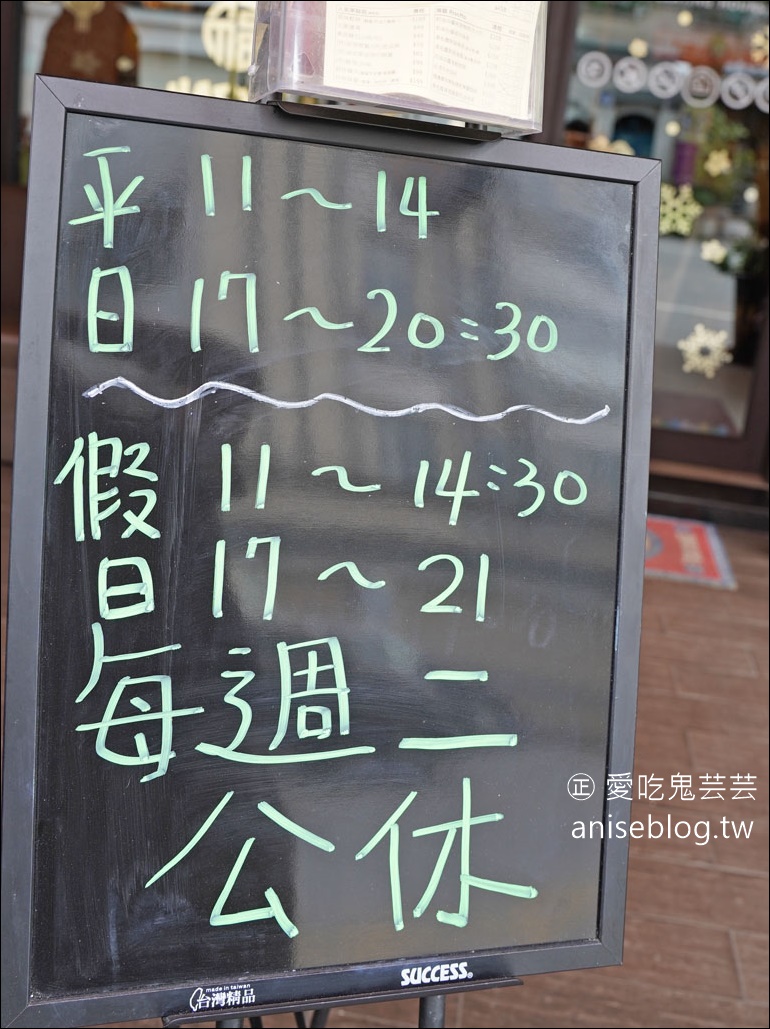 福
平 11～14
日 17～20:30
假 11～14:30
日 17～21
每週二
公休
㊣ 愛吃鬼芸芸
aniseblog.tw
made in taiwan
台灣精品
SUCCESS®